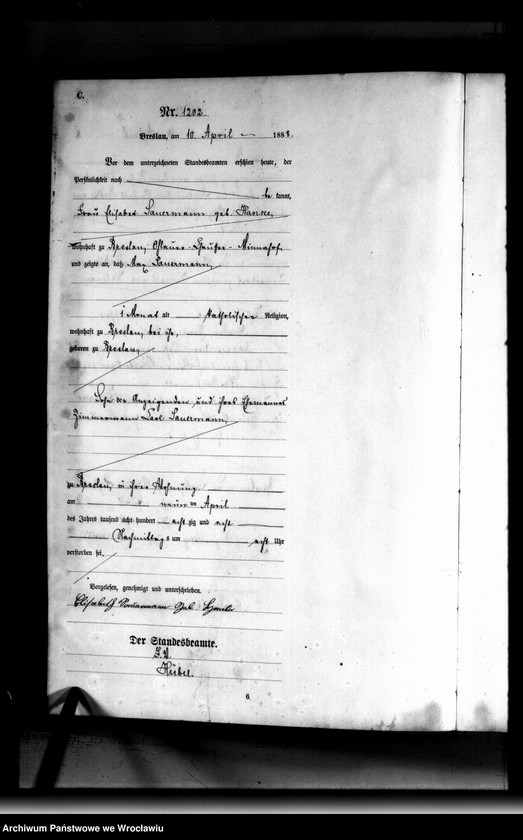 C.
Nr. 1202.
Breslau, am 10 April 1888.
Vor dem unterzeichneten Standesbeamten erschien heute, der
Persönlichkeit nach
be kannt,
Frau Elisabet Sauermann geb.
wohnhaft zu Breslau,
und zeigte an, daß Max Sauermann,
1 Monat alt katholischer Religion,
wohnhaft zu Breslau, bei ihr,
geboren zu Breslau,
Sohn der Anzeigenden und ihres Ehemannes
Zimmermann Carl Sauermann,
zu Breslau, in ihrer Wohnung
am neun ten April
des Jahres tausend acht hundert acht zig und acht
Nachmittags um acht Uhr
verstorben sei.
Vorgelesen, genehmigt und unterschrieben.
Elisabeth Sauermann geb
Der Standesbeamte.
I. V.
6
Archiwum Państwowe we Wrocławiu